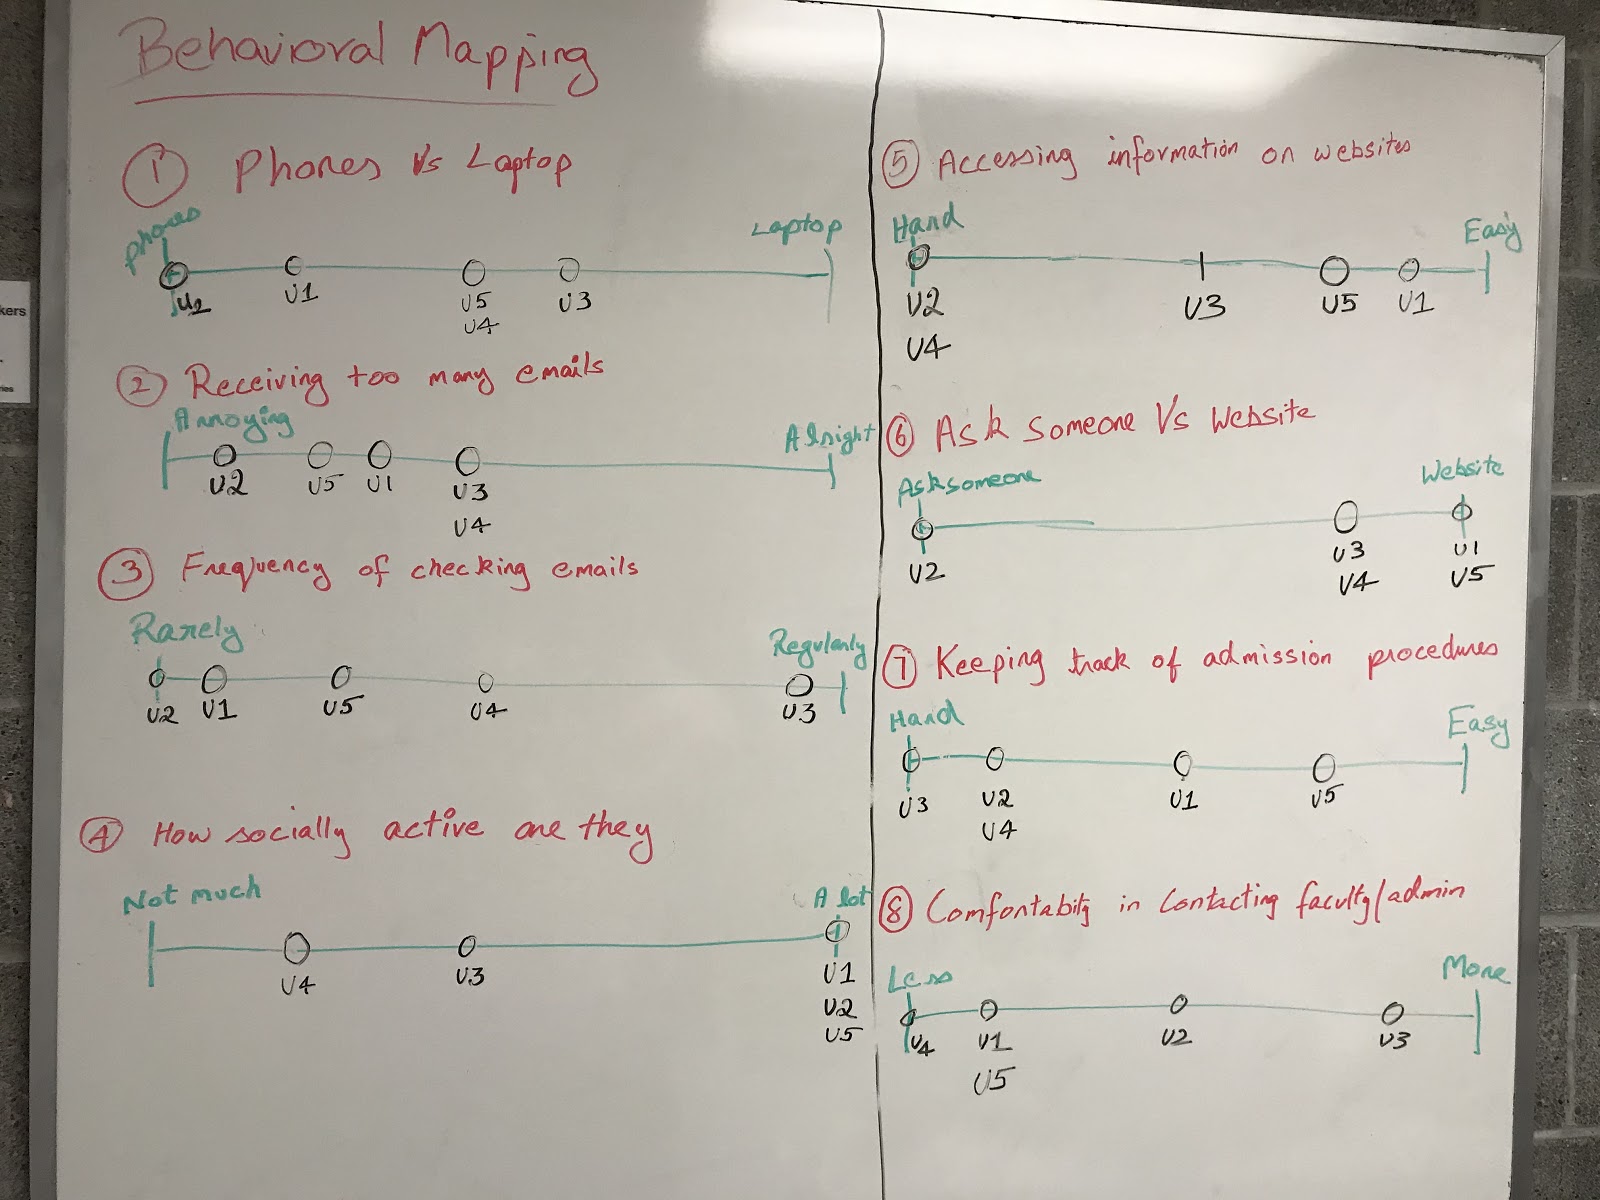 Behavioral Mapping
① Phones Vs Laptop
Phones Laptop
U2 U1 U5 U3
U4
② Receiving too many emails
Annoying Alright
U2 U5 U1 U3
U4
③ Frequency of checking emails
Rarely Regularly
U2 U1 U5 U4 U3
④ How socially active are they
Not much A lot
U4 U3 U1
U2
U5
⑤ Accessing information on websites
Hard Easy
U2 U3 U5 U1
U4
⑥ Ask someone Vs Website
Ask someone Website
U2 U3 U1
U4 U5
⑦ Keeping track of admission procedures
Hard Easy
U3 U2 U1 U5
U4
⑧ Comfortability in Contacting faculty/admin
Less More
U4 U1 U2 U3
U5
kers
ries